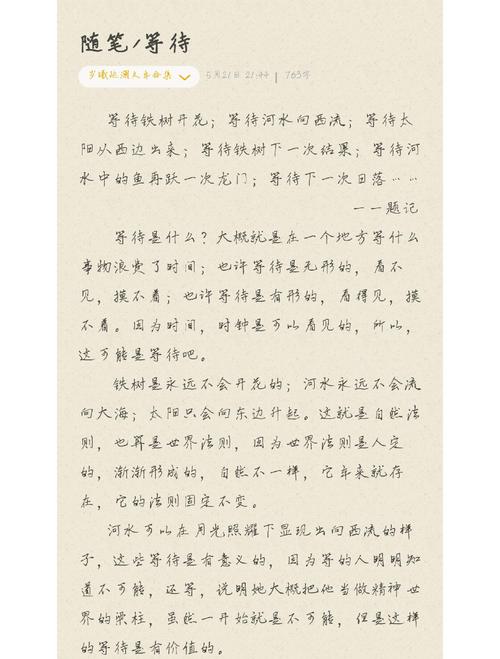 随笔/等待
5月21日 21:44 | 763字
等待铁树开花；等待河水向西流；等待太
阳从西边出来；等待铁树下一次结果；等待河
水中的鱼再跃一次龙门；等待下一次日落……
——题记
等待是什么？大概就是在一个地方等什么
事物浪费了时间；也许等待是无形的，看不
见，摸不着；也许等待是有形的，看得见，摸
不着。因为时间，时钟是可以看见的，所以，
这可能是等待吧。
铁树是永远不会开花的；河水永远不会流
向大海；太阳只会向东边升起。这就是自然法
则，也算是世界法则，因为世界法则是人定
的，渐渐形成的，自然不一样，它本来就存
在，它的法则固定不变。
河水可以在月光照耀下显现出向西流的样
子，这些等待是有意义的，因为等的人明明知
道不可能，还等，说明她大概把他当做精神世
界的梁柱，虽然一开始就是不可能，但是这样
的等待是有价值的。